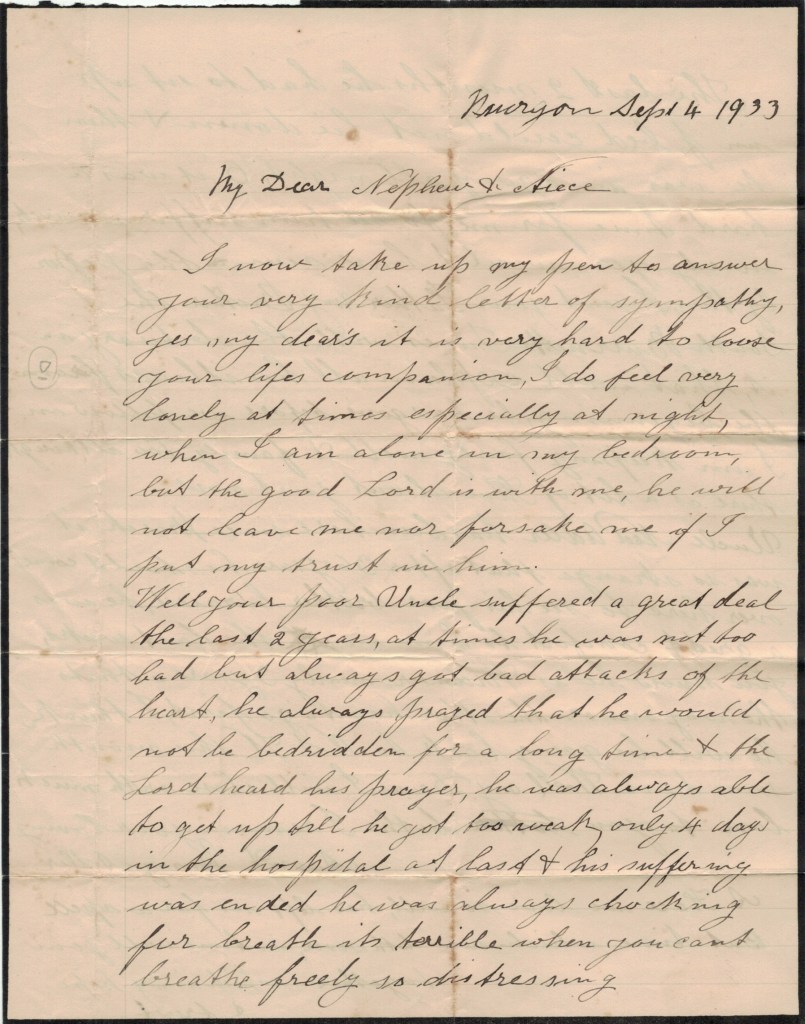 Murgon Sept 4 1933
My Dear Nephew & Niece
I now take up my pen to answer
your very kind letter of sympathy,
yes my dear's it is very hard to loose
your lifes companion, I do feel very
lonely at times especially at night,
when I am alone in my bedroom,
but the good Lord is with me, he will
not leave me nor forsake me if I
put my trust in him.
Well your poor Uncle suffered a great deal
the last 2 years, at times he was not too
bad but always got bad attacks of the
heart, he always prayed that he would
not be bedridden for a long time & the
Lord heard his prayer, he was always able
to get up till he got too weak, only 4 days
in the hospital at last & his suffering
was ended he was always chocking
for breath its terrible when you cant
breathe freely so distressing